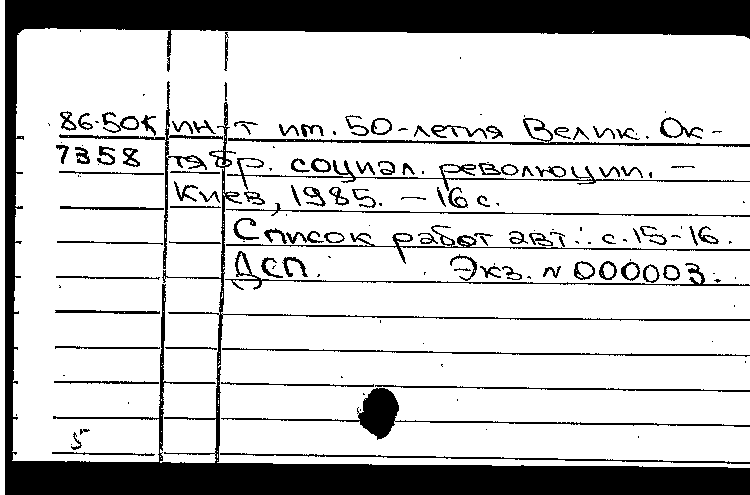 86-50К ин-т им. 50-летия Велик. Ок-
7358 тябр. социал. революции. –
Киев, 1985. – 16 с.
Список работ авт.: с. 15-16.
ДСП. Экз. N 000003.
5